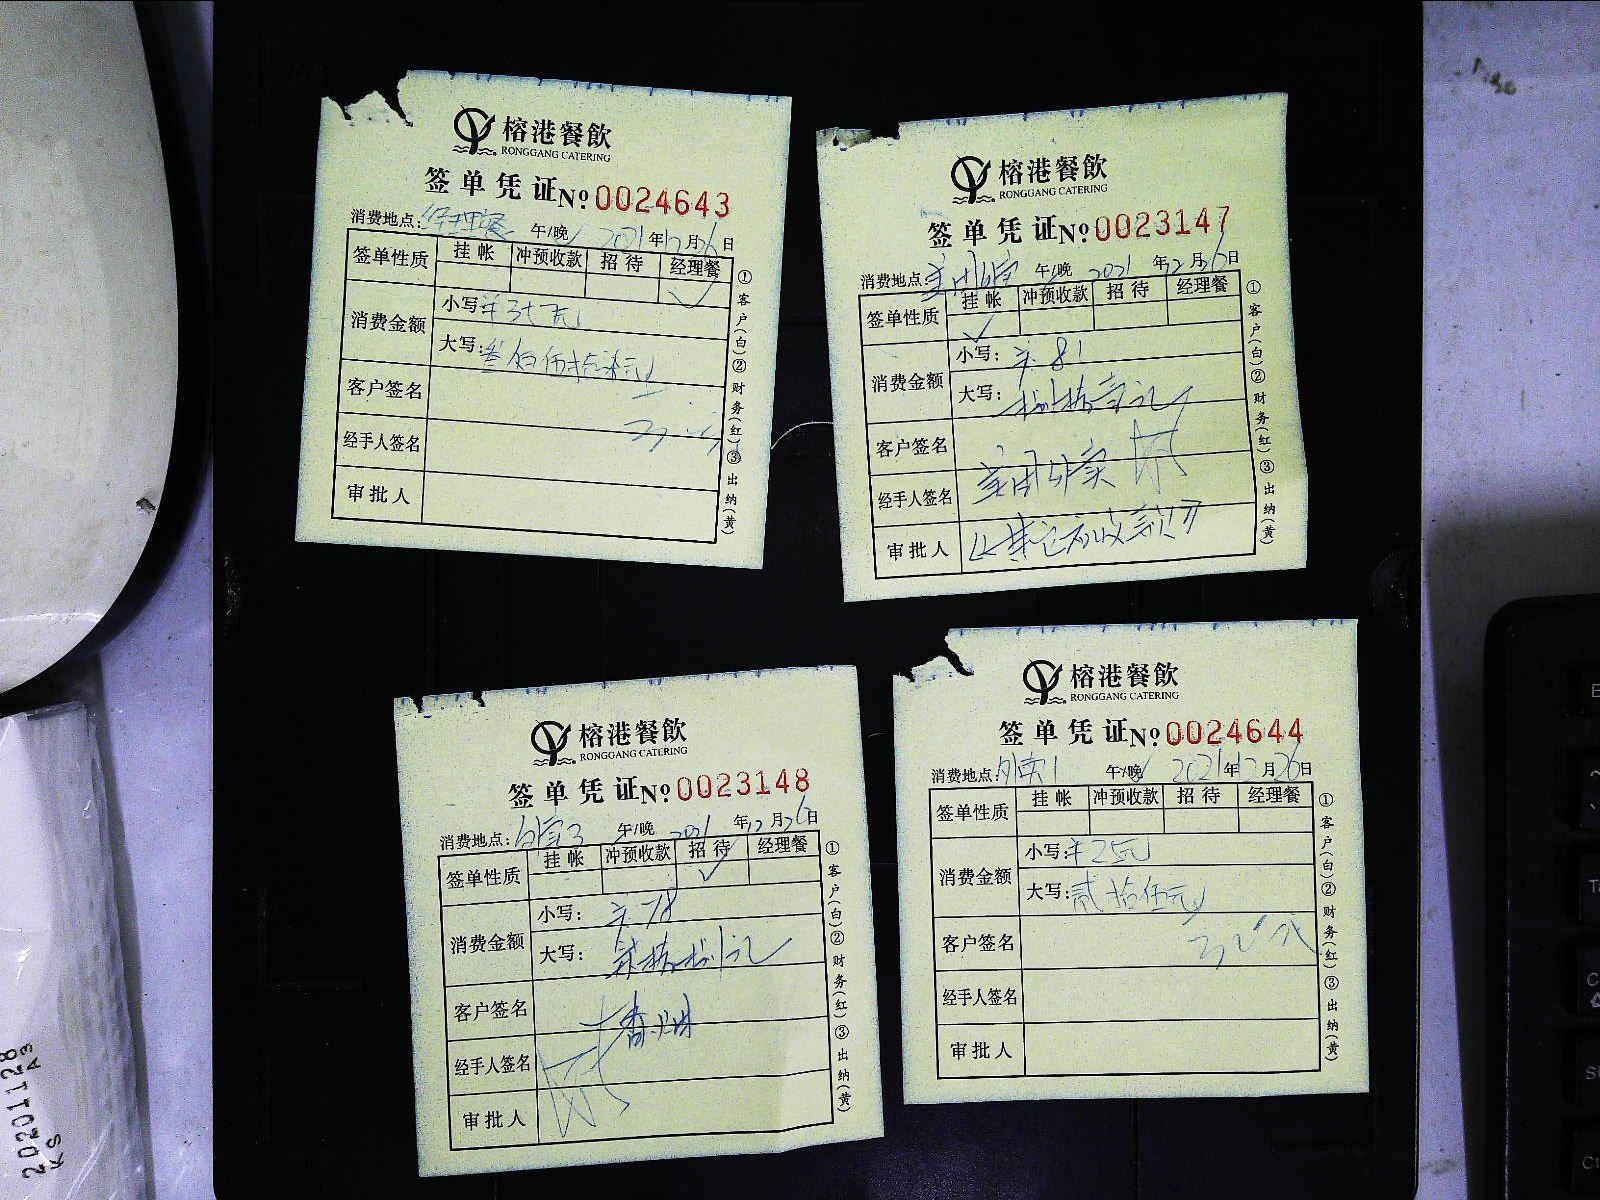 榕港餐飲
RONGGANG CATERING
签单凭证 № 0024643
消费地点：经理餐 午/晚 2021年12月26日
签单性质 挂帐 冲预收款 招待 经理餐
✓
消费金额 小写：
大写：叁佰伍拾柒元
客户签名
经手人签名
审批人
①客户(白)②财务(红)③出纳(黄)
榕港餐飲
RONGGANG CATERING
签单凭证 № 0023147
消费地点：美团外卖 午/晚 2021年12月26日
签单性质 挂帐 冲预收款 招待 经理餐
✓
消费金额 小写：¥81
大写：捌拾壹元
客户签名
经手人签名 美团外卖
审批人
①客户(白)②财务(红)③出纳(黄)
榕港餐飲
RONGGANG CATERING
签单凭证 № 0023148
消费地点： 午/晚 2021年12月26日
签单性质 挂帐 冲预收款 招待 经理餐
✓
消费金额 小写：¥78
大写：柒拾捌元
客户签名 香烟
经手人签名
审批人
①客户(白)②财务(红)③出纳(黄)
榕港餐飲
RONGGANG CATERING
签单凭证 № 0024644
消费地点：外卖1 午/晚 2021年12月26日
签单性质 挂帐 冲预收款 招待 经理餐
消费金额 小写：¥25元
大写：贰拾伍元
客户签名
经手人签名
审批人
①客户(白)②财务(红)③出纳(黄)
20201128
A3
KS